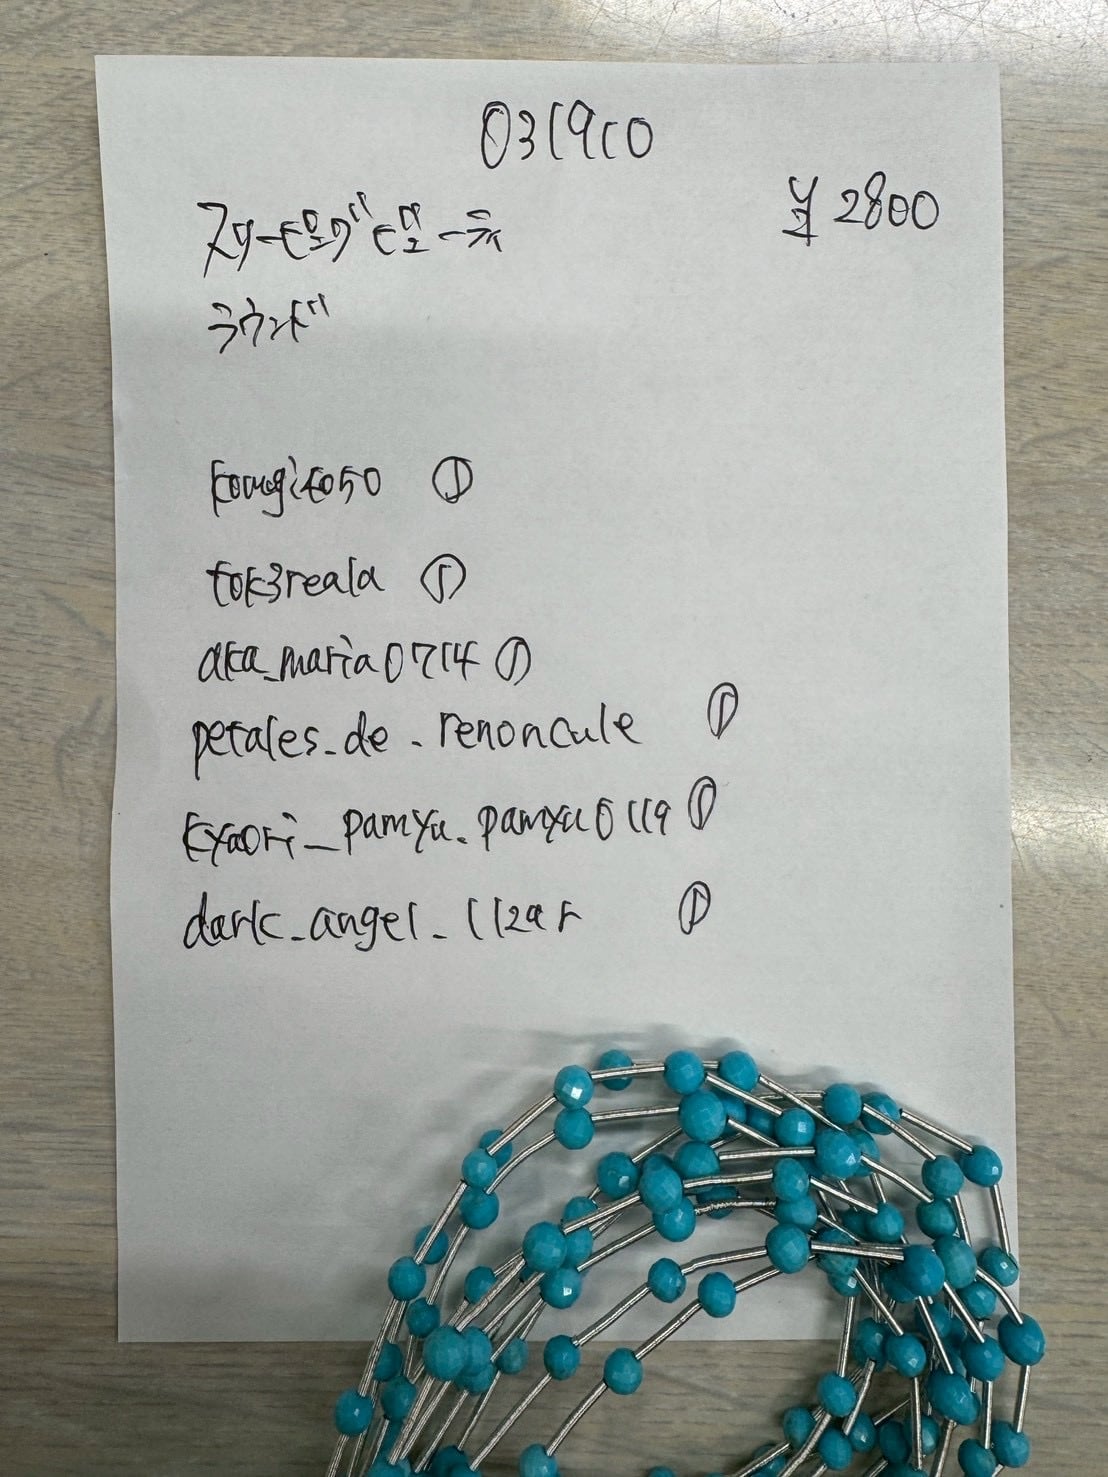 031910
¥2800
スリーピングビューティ
ラウンド
①
tok3reala ①
aka_maria0714 ①
petales_de_renoncule ①
kyaori_pamyu.pamyu0119 ①
dark_angel_112ar ①